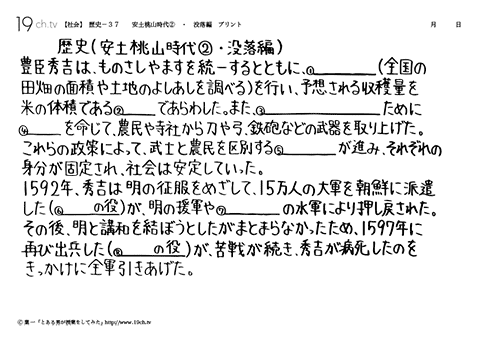 19ch.tv 【社会】 歴史－37 安土桃山時代② ・ 没落編 プリント 月 日
歴史(安土桃山時代②・没落編)
豊臣秀吉は、ものさしやますを統一するとともに、①__________(全国の
田畑の面積や土地のよしあしを調べる)を行い、予想される収穫量を
米の体積である②________であらわした。また、③______________ために
④______を命じて、農民や寺社から刀や弓、鉄砲などの武器を取り上げた。
これらの政策によって、武士と農民を区別する⑤__________が進み、それぞれの
身分が固定され、社会は安定していった。
1592年、秀吉は明の征服をめざして、15万人の大軍を朝鮮に派遣
した(⑥____の役)が、明の援軍や⑦________の水軍により押し戻された。
その後、明と講和を結ぼうとしたがまとまらなかったため、1597年に
再び出兵した(⑧____の役)が、苦戦が続き、秀吉が病死したのを
きっかけに全軍引きあげた。
© 葉一「とある男が授業をしてみた」http://www.19ch.tv